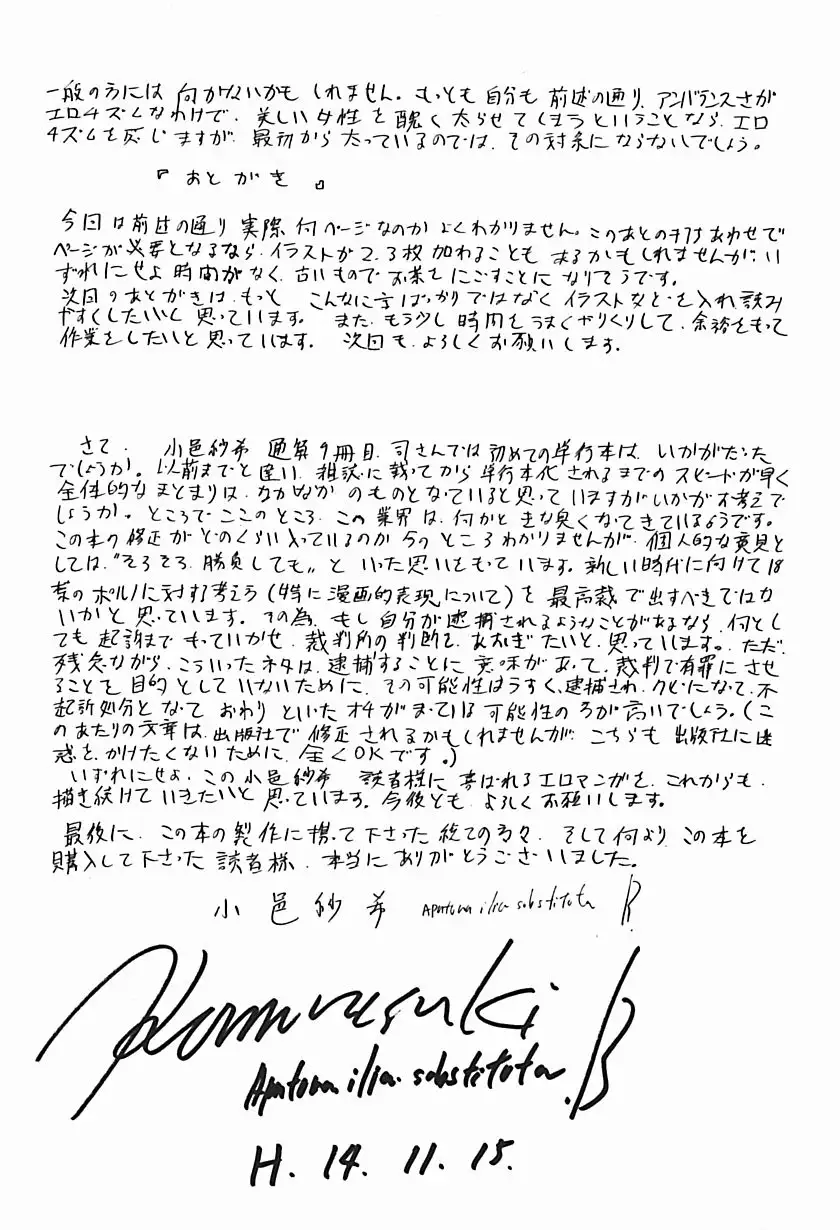 一般の方には何かないかもしれません。もっとも自分も前述の通り、アンバランスさが
エロチズムなわけで、美しい女性を醜く太らせてしまうということなら、エロ
チズムを感じますが、最初から太っているのでは、その対象にならないでしょう。
『あとがき』
今回は前述の通り実際何ページなのかよくわかりません。このあとの打ちあわせで
ページが必要となるなら、イラストが2、3枚加わることもあるかもしれませんが、い
ずれにせよ時間がなく、古いものでお茶をにごすことになりそうです。
次回のあとがきは、もっと こんなに字ばっかりではなくイラストなどを入れ、読み
やすくしたいと思っています。また、もう少し時間をうまくやりくりして、余裕をもって
作業をしたいと思っています。次回も、よろしくお願いします。
さて、小邑紗希 通算9冊目、司さんでは初めての単行本は、いかがだった
でしょうか。以前までと違い、雑誌に載ってから単行本化されるまでのスピードが早く
全体的なまとまりは、なかなかのものとなっていると思っていますがいかがお考えで
しょうか。ところでここのところ、この業界は、何かときな臭くなってきているようです。
この本の修正がどのくらい入っているのか今のところわかりませんが、個人的な意見と
しては、"そろそろ、勝負しても〟といった思いをもっています。新しい時代に向けて18
禁のポルノに対する考え方(特に漫画的表現について)を最高裁で出すべきではな
いかと思っています。その為、もし自分が逮捕されるようなことがあるなら、何とし
ても起訴までもっていかせ、裁判所の判断を、あおぎたいと、思っています。ただ、
残念ながら、こういったネタは、逮捕することに意味があって、裁判で有罪にさせ
ることを目的としていないために、その可能性はうすく、逮捕され、クビになって、不
起訴処分となっておわりといったオチがまっている可能性の方が高いでしょう。(こ
のあたりの文章は、出版社で修正されるかもしれませんが、こちらも出版社に迷
惑を、かけたくないために、全くOKです。)
いずれにせよ、この小邑紗希 読者様に喜ばれるエロマンガを、これからも、
描き続けていきたいと思っています。今後とも、よろしくお願いします。
最後に、この本の製作に携って下さった総ての方々、そして何より、この本を
購入して下さった読者様、本当にありがとうございました。
小邑紗希 Apatona ilia substitota B
Komurasaki B
Apatona ilia. substitota
H. 14. 11. 15.